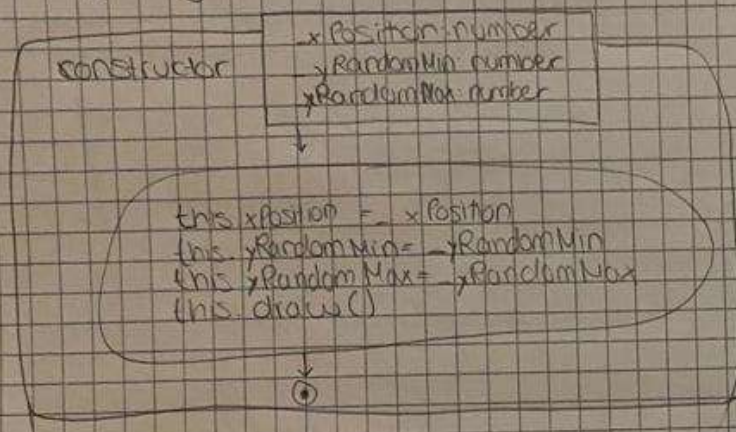 _xPosition: number
constructor
_yRandomMin: number
_yRandomMax: number
this.xPosition = _xPosition
this.yRandomMin = _yRandomMin
this.yRandomMax = _yRandomMax
this.draw()